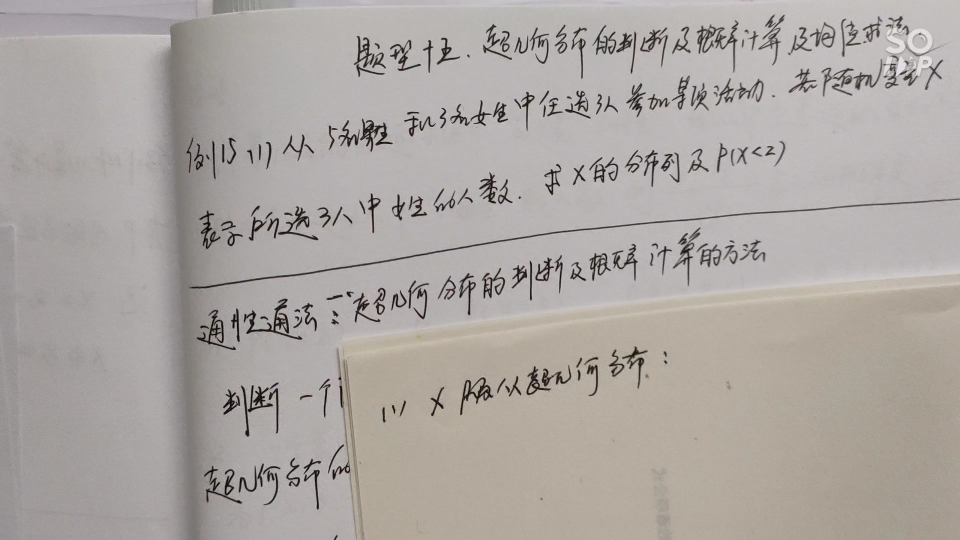 题型十五、超几何分布的判断及概率计算及均值求法.
例15 (1) 从5名男生和3名女生中任选3人参加某项活动.若随机变量X
表示所选3人中女生的人数.求X的分布列及P(X<2)
通性通法:一.超几何分布的判断及概率计算的方法
判断一个
超几何分布的
(1) X服从超几何分布: